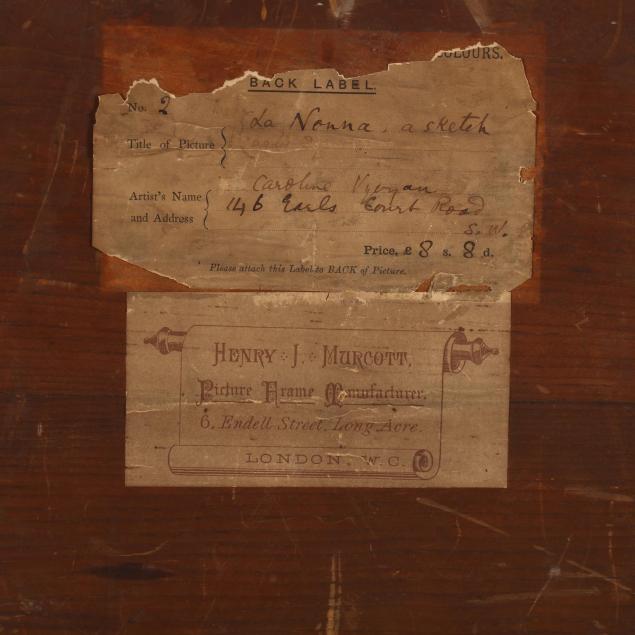 COLOURS.
BACK LABEL.
No. 2
La Nonna, a sketch
Title of Picture
Caroline Vyvyan
Artist's Name
and Address
146 Earls Court Road
S. W.
Price, £ 8 s. 8 d.
Please attach this Label to BACK of Picture.
HENRY J. MURCOTT,
Picture Frame Manufacturer.
6, Endell Street, Long Acre.
LONDON, W.C.